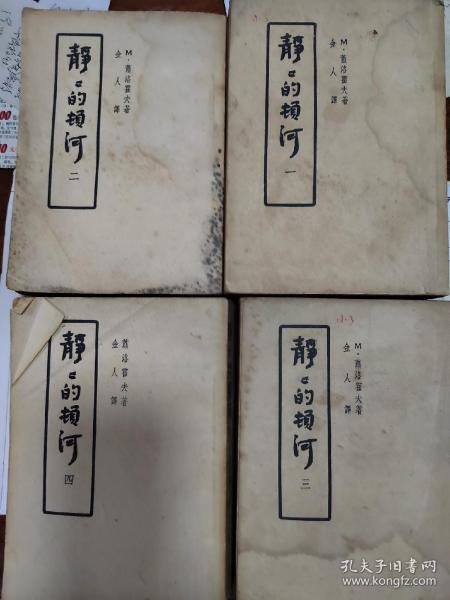 靜〻的頓河
二
M·蕭洛霍夫著
金人譯
靜〻的頓河
一
M·蕭洛霍夫著
金人譯
靜〻的頓河
四
蕭洛霍夫著
金人譯
靜〻的頓河
三
M·蕭洛霍夫著
金人譯
孔夫子旧书网
www.kongfz.com